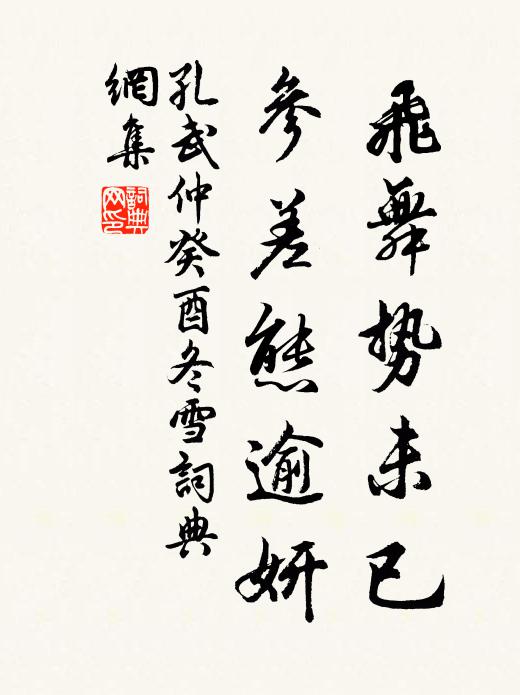 飛舞势未已
參差態逾妍
孔武仲癸酉冬雪詞典
網集
詞典网印